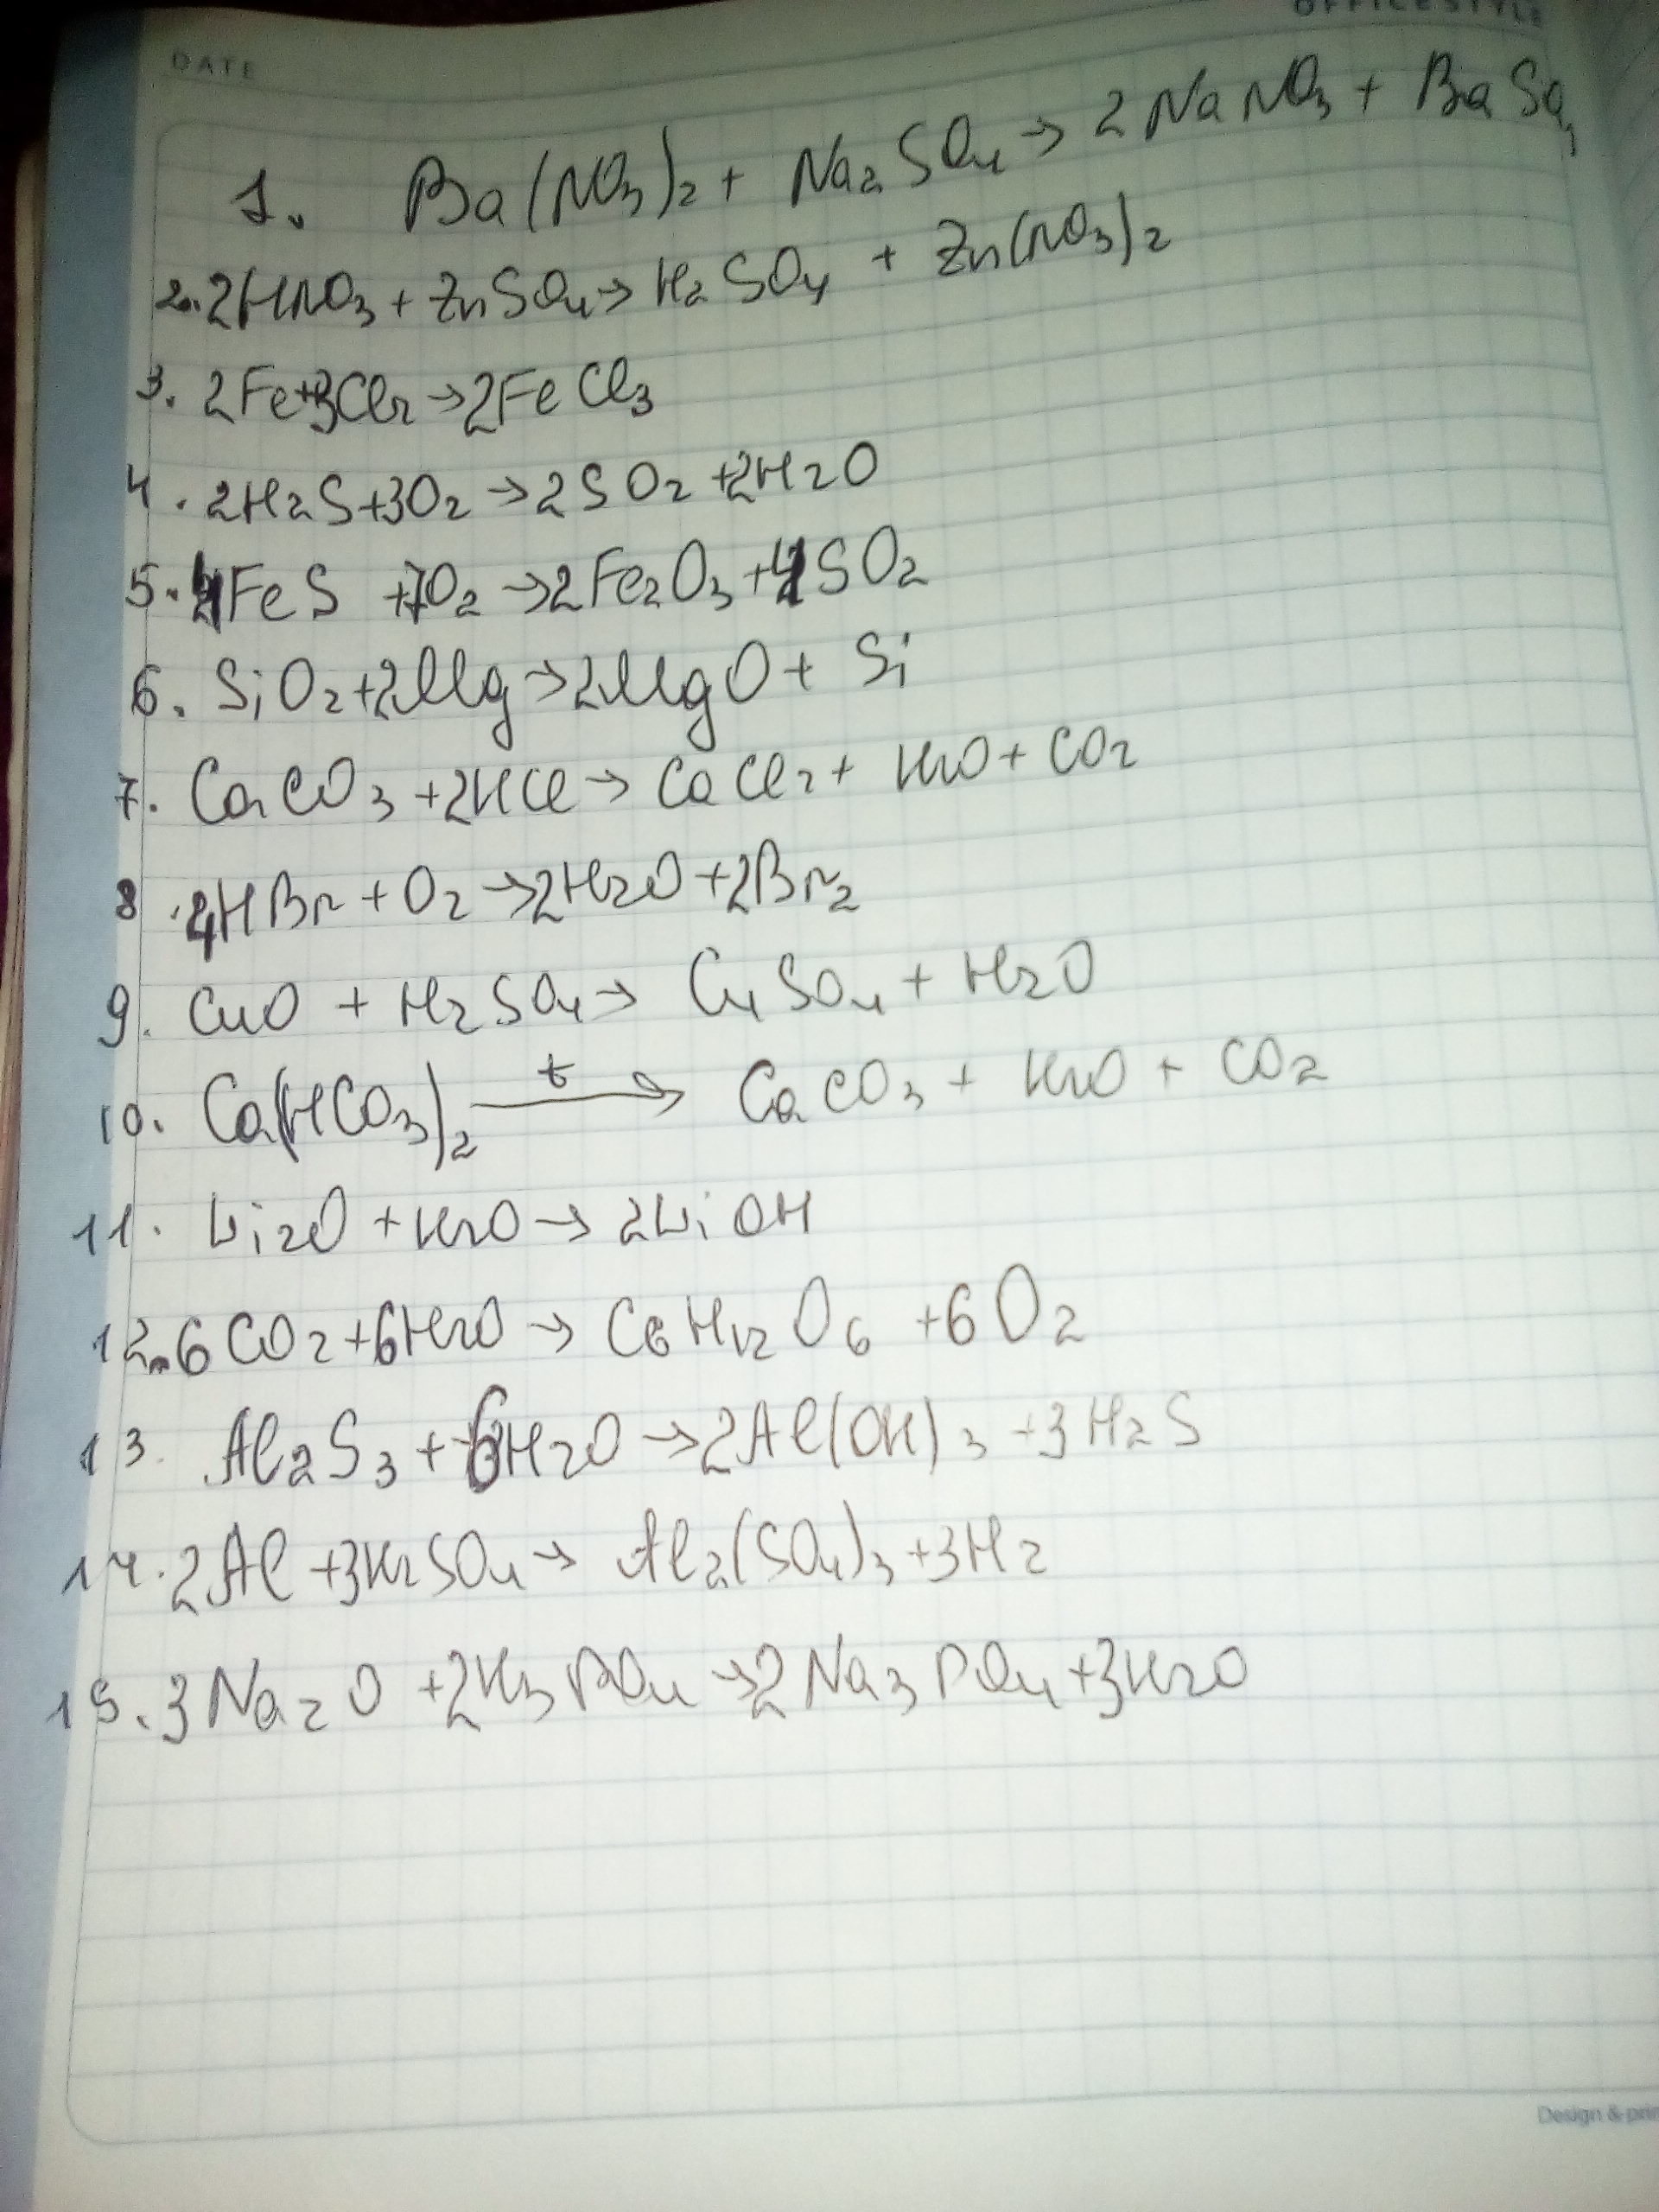 OFFICE STYLE
DATE
1. Ba(NO3)2 + Na2SO4 → 2NaNO3 + BaSO4
2. 2HNO3 + ZnSO4 → H2SO4 + Zn(NO3)2
3. 2Fe+3Cl2 → 2FeCl3
4. 2H2S+3O2 → 2SO2 +2H2O
5. 4FeS +7O2 → 2Fe2O3 +4SO2
6. SiO2+2Mg → 2MgO + Si
7. CaCO3 +2HCl → CaCl2 + H2O + CO2
8. 4HBr + O2 → 2H2O +2Br2
9. CuO + H2SO4 → CuSO4 + H2O
10. Ca(HCO3)2 t → CaCO3 + H2O + CO2
11. Li2O + H2O → 2LiOH
12. 6CO2 +6H2O → C6H12O6 +6O2
13. Al2S3 + 6H2O → 2Al(OH)3 +3H2S
14. 2Al +3H2SO4 → Al2(SO4)3 +3H2
15. 3Na2O +2H3PO4 → 2Na3PO4 +3H2O
Design &